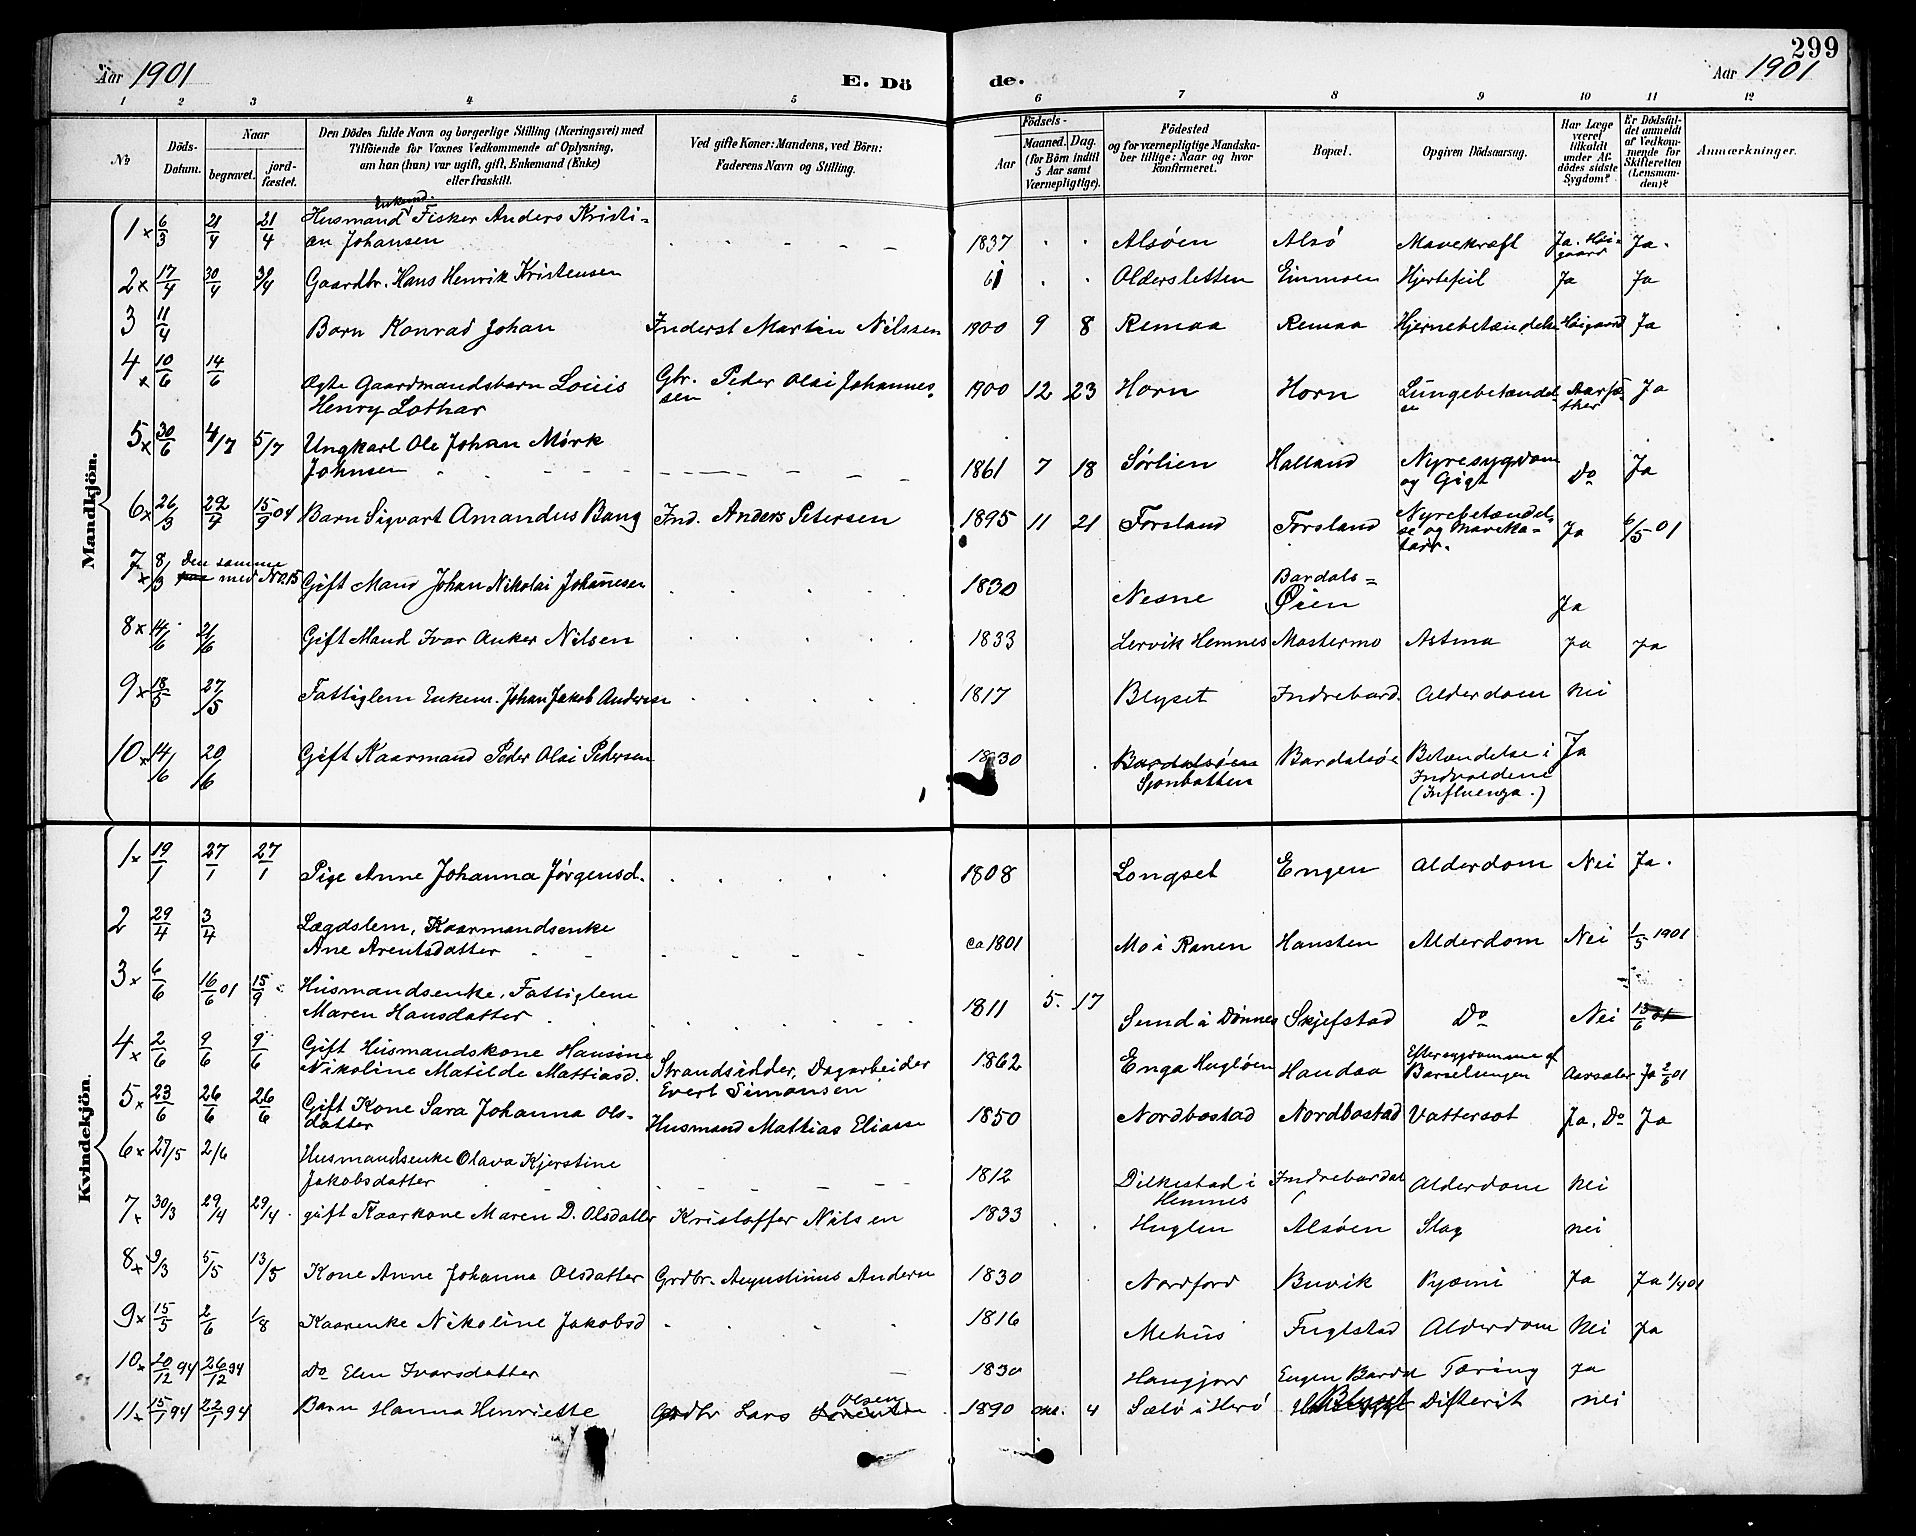 299
Aar 1901 E. Dö de. Aar 1901
1 2 3 4 5 6 7 8 9 10 11 12
No Döds-Datum. Naar begravet. jord-fæstet. Den Dödes fulde Navn og borgerlige Stilling (Næringsvei) med Tilföiende for Voxnes Vedkommende af Oplysning, om han (hun) var ugift, gift, Enkemand (Enke) eller fraskilt. Ved gifte Koner: Mandens, ved Börn: Faderens Navn og Stilling. Födsels- Aar Maaned. Dag. (for Börn indtil 5 Aar samt Værnepligtige). Födested og for værnepligtige Mandskaber tillige: Naar og hvor konfirmeret. Bopæl. Opgiven Dödsaarsag. Har Læge været tilkaldt under Afdödes sidste Sygdom? Er Dödsfaldet anmeldt af Vedkommende for Skifteretten (Lensmanden)? Anmærkninger.
Mandkjön.
Enkemd.
1x 6/3 21/4 21/4 Husmand Fisker Anders Kristi-
an Johansen 1837 Alsøen Alsö Mavekræft Ja. Høigaard Ja.
2x 17/4 30/4 30/4 Gaardbr. Hans Henrik Kristensen 61 Oldersletten Einmoen Hjertefeil Ja Ja
3 11/4 Barn Konrad Johan Inderst Martin Nilssen 1900 9 8 Remaa Remaa Hjernebetændelse Høigaard Ja
4x 10/6 14/6 Ægte Gaardmandsbarn Louis Gbr. Peder Olai Johannes-
Henry Lothar sen 1900 12 23 Horn Horn Lungebetændel-
se Ja
5x 30/6 4/7 5/7 Ungkarl Ole Johan Mørk
Johnsen 1861 7 18 Sørlien Halland Nyresygdom
og Gigt Do Ja
6x 26/3 29/4 15/9 04 Barn Sigvart Amandus Bang Ind. Anders Petersen 1895 11 21 Forsland Forsland Nyrebetændel-
se og Maveka-
tarr. Ja 6/5 01
7x 8/3 den samme med No 15 Gift Mand Johan Nikolai Johannesen 1830 Nesne Bardals=
Øien Ja
8x 14/6 21/6 Gift Mand Ivar Anker Nilsen 1833 Lervik Hemnes Mastermo Astma Ja Ja
9x 18/5 27/5 Fattiglem Enkem. Johan Jakob Andersen 1817 Blyset Indrebard. Alderdom Nei
10x 14/6 20/6 Gift Kaarmand Peder Olai Pedersen 1830 Bardalsøen
Sjonbotten Bardalsøe Betændelse i
Indvoldene
(Influenza.) Ja
Kvindekjön.
1x 19/1 27/1 27/1 Pige Anne Johanna Jørgensd. 1808 Longset Engen Alderdom Nei Ja.
2 29/4 3/4 Lægdslem, Kaarmandsenke
Ane Arentsdatter ca 1801 Mo i Ranen Hansten Alderdom Nei 1/5 1901
3x 6/6 16/6 01 15/9 Husmandsenke, Fattiglem
Maren Hansdatter 1811 5. 17 Sund i Dønnes Skjefstad Do Nei 13/6 01
4x 2/6 9/6 9/6 Gift Husmandskone Hansine
Nikoline Matilde Mattiasd. Strandsidder, Dagarbeider
Evert Simonsen 1862 Enga Hugløen Handaa Eftersygdomme af
Barselsengen Ja 2/6 01
5x 23/6 26/6 26/6 Gift Kone Sara Johanna Ols-
datter Husmand Mathias Eliasse 1850 Nordbostad Nordbostad Vattersot Ja, Do Ja
6x 27/5 2/6 Husmandsenke Olava Kjerstine
Jakobsdatter 1812 Dilkestad i
Hemnes Indrebardal Alderdom Nei
7x 30/3 29/4 29/4 gift Kaarkone Maren D. Olsdatter Kristoffer Nilsen 1833 Huglen Alsøen Slag nei
8x 9/3 5/5 13/5 Kone Anne Johanna Olsdatter Grdbr. Augustinus Andersn 1830 Nordford Buvik Pyæmi Ja Ja 1/4 01
9x 15/5 2/6 1/8 Kaarenke Nikoline Jakobsd 1816 Mehus Fuglstad Alderdom Nei Ja
10x 20/12 94 26/12 94 Do Elen Ivarsdatter 1830 Engen Bardal Tæring Ja
11x 15/1 94 22/1 94 Barn Hanna Henriette Grdbr Lars Olsen 1890 4 Sælø i Herø Blyset Difterit nei